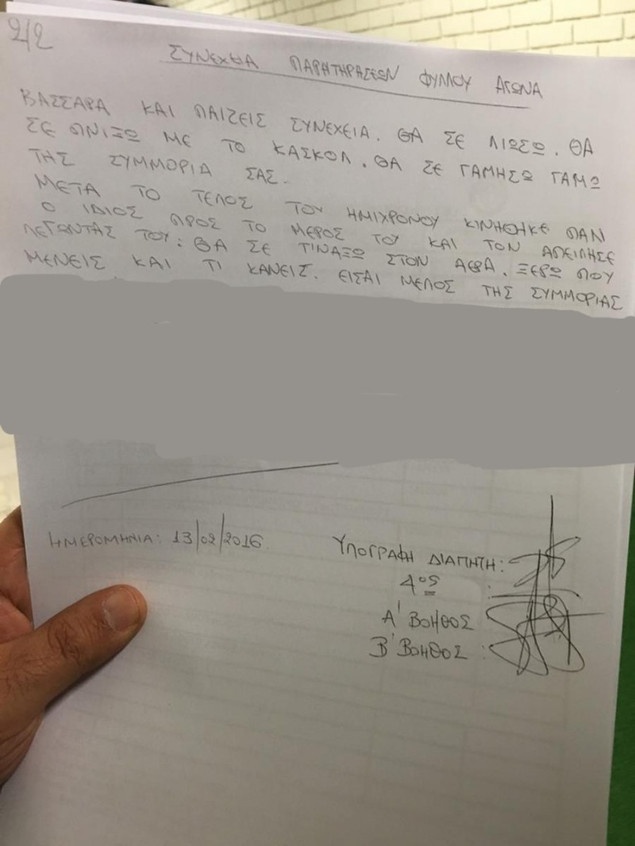 2/2
ΣΥΝΕΧΕΙΑ ΠΑΡΑΤΗΡΗΣΕΩΝ ΦΥΛΛΟΥ ΑΓΩΝΑ
ΒΑΖΕΛΑ ΚΑΙ ΠΑΙΖΕΙΣ ΣΥΝΕΧΕΙΑ. ΘΑ ΣΕ ΛΙΩΣΩ. ΘΑ
ΣΕ ΠΝΙΞΩ ΜΕ ΤΟ ΚΑΣΚΟΛ. ΘΑ ΣΕ ΓΑΜΗΣΩ ΓΑΜΩ
ΤΗΣ ΣΥΜΜΟΡΙΑ ΣΑΣ.
ΜΕΤΑ ΤΟ ΤΕΛΟΣ ΤΟΥ ΗΜΙΧΡΟΝΟΥ ΚΙΝΗΘΗΚΕ ΠΑΛΙ
Ο ΙΔΙΟΣ ΠΡΟΣ ΤΟ ΜΕΡΟΣ ΤΟΥ ΚΑΙ ΤΟΝ ΑΠΕΙΛΗΣΕ
ΛΕΓΩΝΤΑΣ ΤΟΥ: ΘΑ ΣΕ ΤΙΝΑΞΩ ΣΤΟΝ ΑΕΡΑ. ΞΕΡΩ ΠΟΥ
ΜΕΝΕΙΣ ΚΑΙ ΤΙ ΚΑΝΕΙΣ. ΕΙΣΑΙ ΜΕΛΟΣ ΤΗΣ ΣΥΜΜΟΡΙΑΣ
ΗΜΕΡΟΜΗΝΙΑ: 13/02/2016
ΥΠΟΓΡΑΦΗ ΔΙΑΙΤΗΤΗ:
4ος :
Α' ΒΟΗΘΟΣ :
Β' ΒΟΗΘΟΣ :